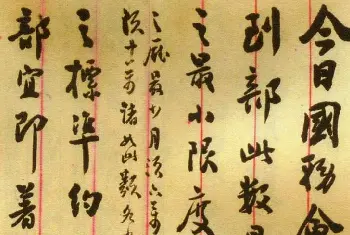 今日國務會
到部此数
之最小限度
之廠最少月須六萬
須十萬諸如此類
之標準約
部宜即著